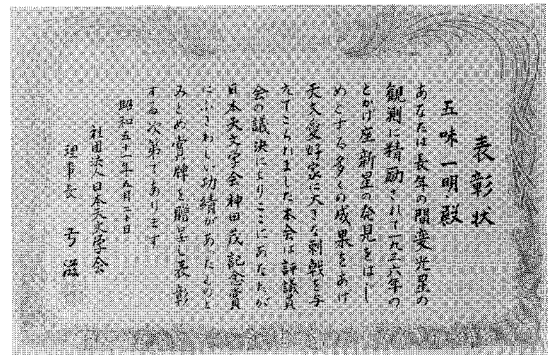 表彰状
五味一明殿
あなたは長年の間変光星の
観測に精励され一九三六年の
とかげ座新星の発見をはじ
めとする多くの成果をあげ
天文愛好家に大きな刺戟を与
えてこられました本会は評議員
会の議決によりここにあなたが
日本天文学会神田茂記念賞
にふさわしい功績があったものと
みとめ賞牌を贈呈し表彰
する次第であります
昭和五十一年五月二十日
社団法人日本天文学会
理事長